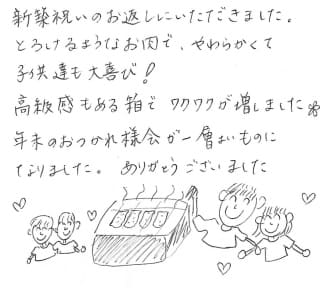 新築祝いのお返しにいただきました。
とろけるようなお肉で、やわらかくて
子供達も大喜び!
高級感もある箱でワクワクが増しました
年末のおつかれ様会が一層よいものに
なりました。ありがとうございました